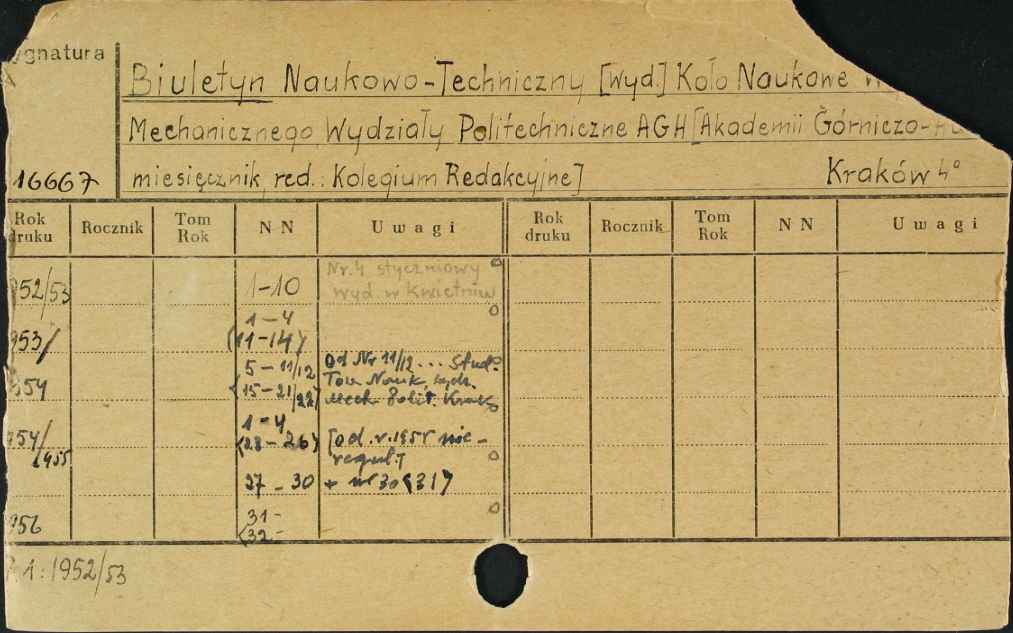 ygnatura
Biuletyn Naukowo-Techniczny [wyd.] Koło Naukowe
Mechanicznego, Wydziały Politechniczne AGH [Akademii Górniczo-
16667 miesięcznik, red.: Kolegium Redakcyjne] Kraków 4°
Rok druku Rocznik Tom Rok NN Uwagi Rok druku Rocznik Tom Rok NN Uwagi
Nr. 4 styczniowy
952/53 1-10 wyd. w kwietniu
1-4
953/ (11-14)
5-11/12 od Nr 11/12 ... Stud.
954 (15-21/22) Tow. Nauk. wydz.
Mech. Polit. Krak.
1-4
954/ (23-26) [od r. 1955 nie-
1955 regul.]
27-30 + nr 30<31>
31-
956 <32-
R. 1: 1952/53